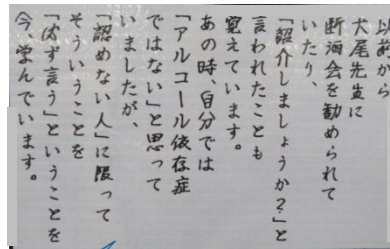 以前から
犬尾先生に
断酒会を勧められて
いたり、
「紹介しましょうか?」と
言われたことも
覚えています。
あの時、自分では
「アルコール依存症
ではない」と思って
いましたが、
「認めない人」に限って
そういうことを
「必ず言う」ということを
今、学んでいます。